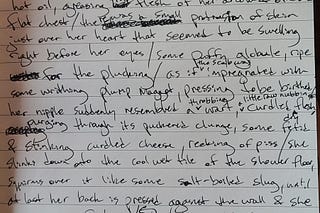 hot oil, greasing flesh of her
flat chest/the was a small protrusion of skin
just over her heart that seemed to be swelling
right before her eyes/some puffy globule, ripe
for the plucking/as if the scab were impregnated with
some writhing, plump maggot pressing to be birthed/
her nipple suddenly resembled a throbbing wart, little raw nubbin of curdled flesh
purging through its puckered some fetid
& stinking curdled cheese, reeking of piss/she
slinks down onto the cool wet tile of the shower floor,
squirms over it like some salt-boiled slug, until
at last her back is pressed against the wall & she